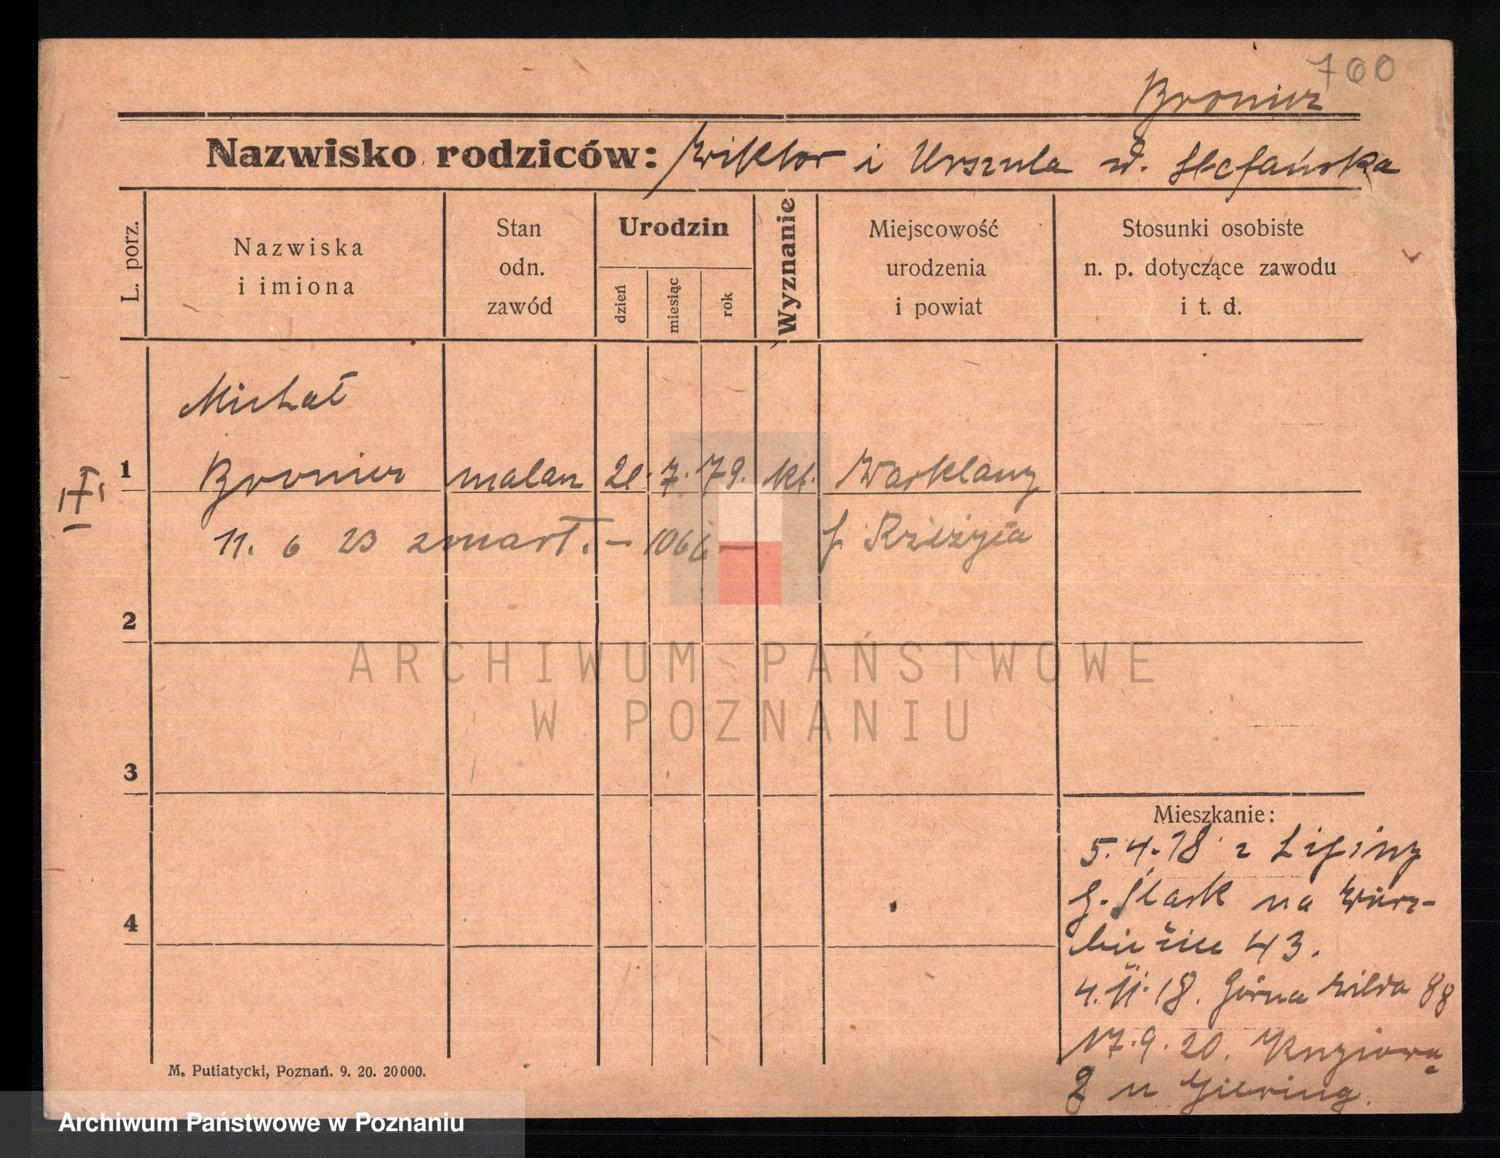 700
Bronier
Nazwisko rodziców: Wiktor i Urszula d. Stefańska
L. porz.
Nazwiska
i imiona
Stan
odn.
zawód
Urodzin
dzień
miesiąc
rok
Wyznanie
Miejscowość
urodzenia
i powiat
Stosunki osobiste
n. p. dotyczące zawodu
i t. d.
Michał
1 Bronier malarz 20. 7. 79. kt.
11. 6 23 zmarł. — 1066 —
2
3
4
Mieszkanie:
5.4.18 z Lipiny
G. Śląsk na Wierz-
bięcice 43.
4.11.18. Górna Wilda 88
17.9.20.
2 u
M. Putiatycki, Poznań. 9. 20. 20000.
ARCHIWUM PAŃSTWOWE
W POZNANIU
Archiwum Państwowe w Poznaniu